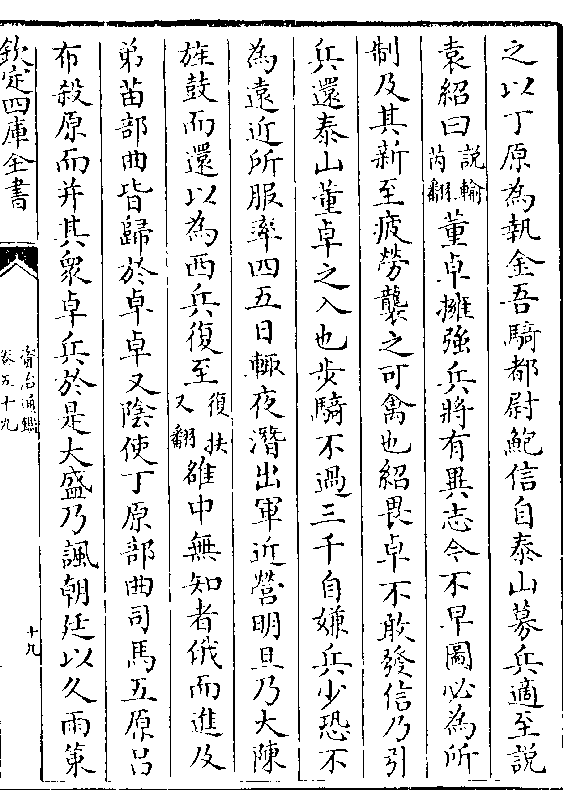 之以丁原為執金吾騎都尉鮑信自泰山募兵適至說
袁紹曰説輸芮翻董卓擁強兵將有異志今不早圖必為所
制及其新至疲勞襲之可禽也紹畏卓不敢發信乃引
兵還泰山董卓之入也步騎不過三千自嫌兵少恐不
為遠近所服率四五日輙夜潛出軍近營明旦乃大陳
旌鼓而還以為西兵復至復扶又翻雒中無知者俄而進及
弟苗部曲皆歸於卓卓又陰使丁原部曲司馬五原吕
布殺原而并其衆卓兵於是大盛乃諷朝廷以久雨策
欽定四庫全書
資治通鑑
卷五十九
十九